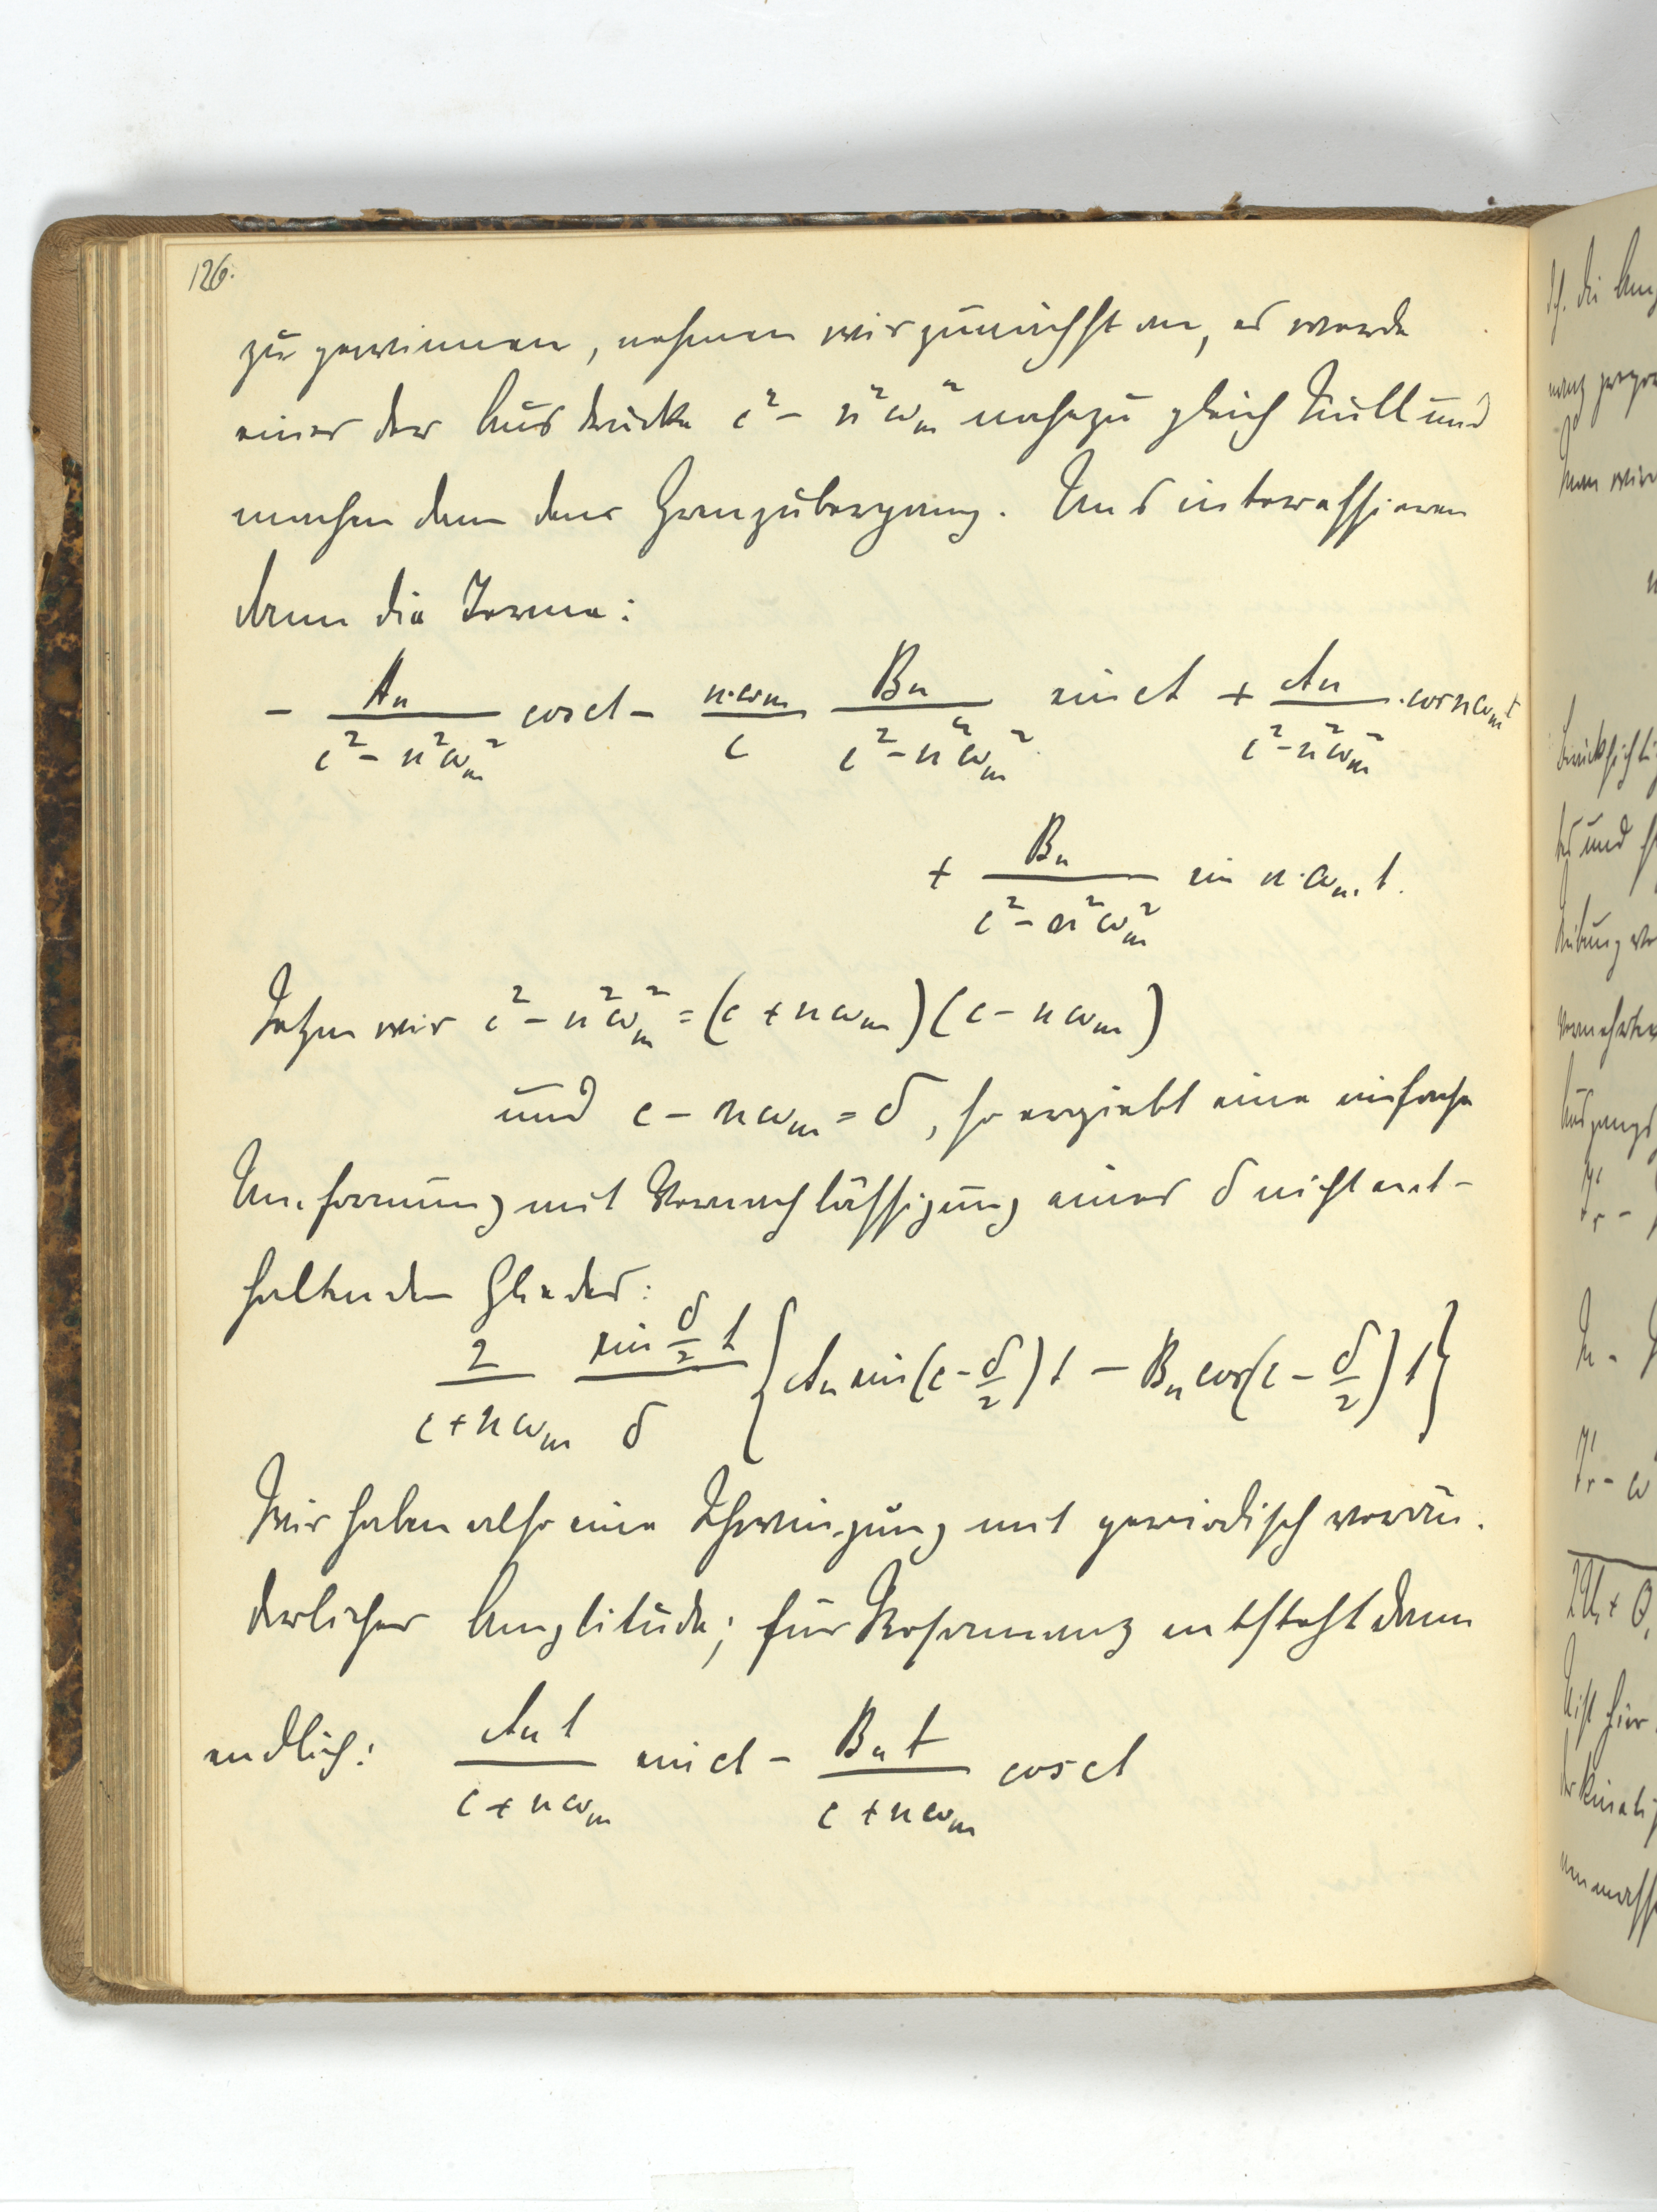 126.
zu gewinnen, nehmen wir zunächst an, es werde
einer der Ausdrücke c² - n²ωₘ² nahezu gleich Null und
machen dann den Grenzübergang. Uns interessieren
dann die Terme:
- Aₙ/(c² - n²ωₘ²) cos ct - n·ωₘ/c Bₙ/(c² - n²ωₘ²) sin ct + Aₙ/(c² - n²ωₘ²) · cos nωₘt
+ Bₙ/(c² - n²ωₘ²) sin n·ωₘ t.
Setzen wir c² - n²ωₘ² = (c + nωₘ)(c - nωₘ)
und c - nωₘ = δ, so ergiebt eine einfache
Umformung mit Vernachlässigung eines δ nicht ent-
haltenden Gliedes:
2/(c + nωₘ) (sin δ/2 t)/δ {Aₙ sin(c - δ/2)t - Bₙ cos(c - δ/2)t}
Wir haben also eine Schwingung mit periodisch verän-
derlicher Amplitude; für Resonanz entsteht dann
endlich: Aₙt/(c + nωₘ) sin ct - Bₙt/(c + nωₘ) cos ct